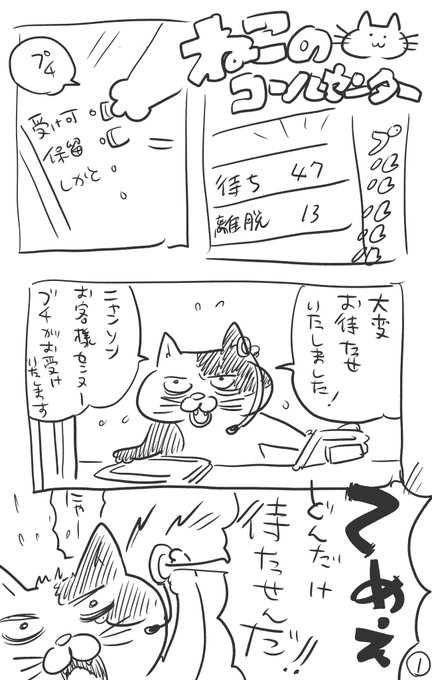 ねこの
コールセンター
プルルルルル
待ち 47
離脱 13
プチ
受け可
保留
しかと
大変
お待たせ
いたしました!
ニャンソン
お客様センター
ブチがお受け
いたします
てめぇ
どんだけ
待たせんだ!!
にゃー
1